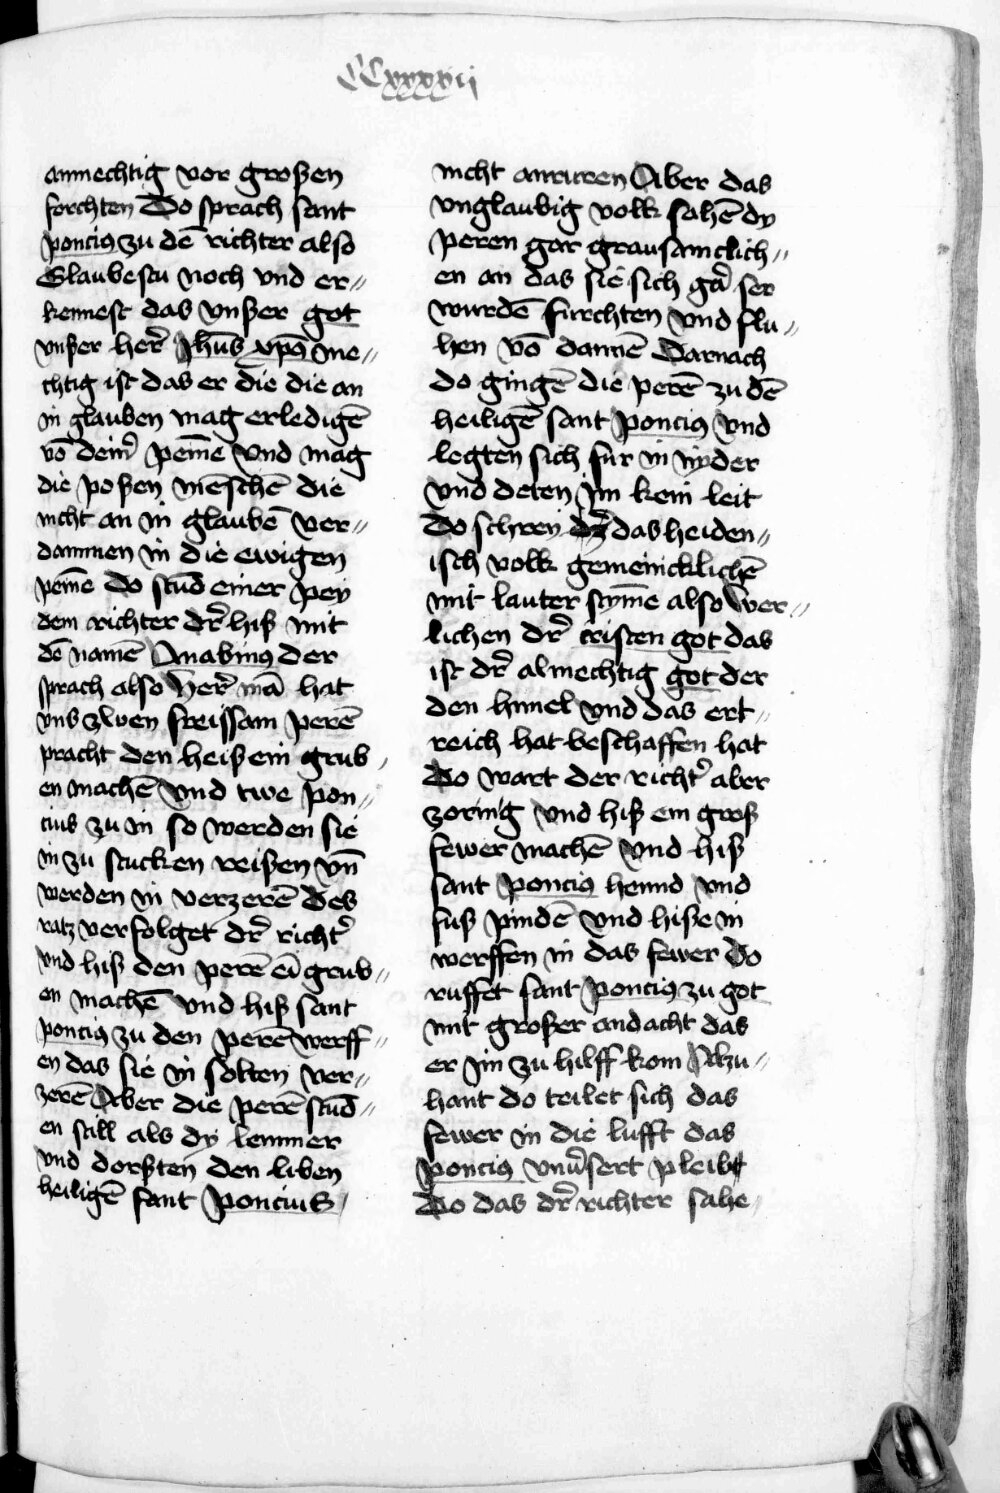 CCxxxxvij
anmechtig vor großen
forchten Do sprach sant
poncius zu dē richter also
Glaubestu noch vnd er〃
kennest das vnßer got
vnßer her̄ Jhūs xp̄s me〃
chtig ist das er die die an
in glauben mag erledigē
vō deim̄ pem̄e vnd mag
die poßen mēschē die
nicht an in glaubē ver〃
dammen in die ewigen
pem̄e Do stūd einer pey
dem richter dr̄ hiß mit
dē namē Anabinus der
sprach also her̄ mā hat
vns zwen freissam perē
pracht den heiß ein grub〃
en machē vnd twe pon〃
cius zu in so werden sie
in zu stucken reißen vn̄
werden in verzerē des
ratz verfolget dr̄ richt̄
vnd hiß den perē eī grub〃
en machē vnd hiß sant
poncius zu den perē werff〃
en das sie in solten ver〃
zerē Aber die perē stūd〃
en still als dy lemmer
vnd dorßten den liben
heiligē sant poncius
nicht anruren Aber das
vnglaubig volk sahē dy
peren gar grausamclich〃
en an das sie sich gar̄ ser
wurdē furchten vnd flu〃
hen vō dannē Darnach
do gingē die perē zu dē
heiligē sant poncius vnd
legten sich fur in nyder
vnd deten jm kein leit
Do schrey das heiden〃
isch volk gemeincklichē
mit lauter stym̄e also wer〃
lichen dr̄ cristen got das
ist dr̄ almechtig got der
den himel vnd das ert〃
reich hat beschaffen hat
do wart der richt̄ aber
zornig vnd hiß ein groß
fewer machē vnd hiß
sant poncius hennd vnd
fuß pindē vnd hiße in
werffen in das fewer do
ruffet sant poncius zu got
mit großer andacht das
er jm zu hilff kom Alzu〃
hant do teilet sich das
fewer in die lufft das
poncius vnu̇sert pleibt
Do das dr̄ richter sahe〃